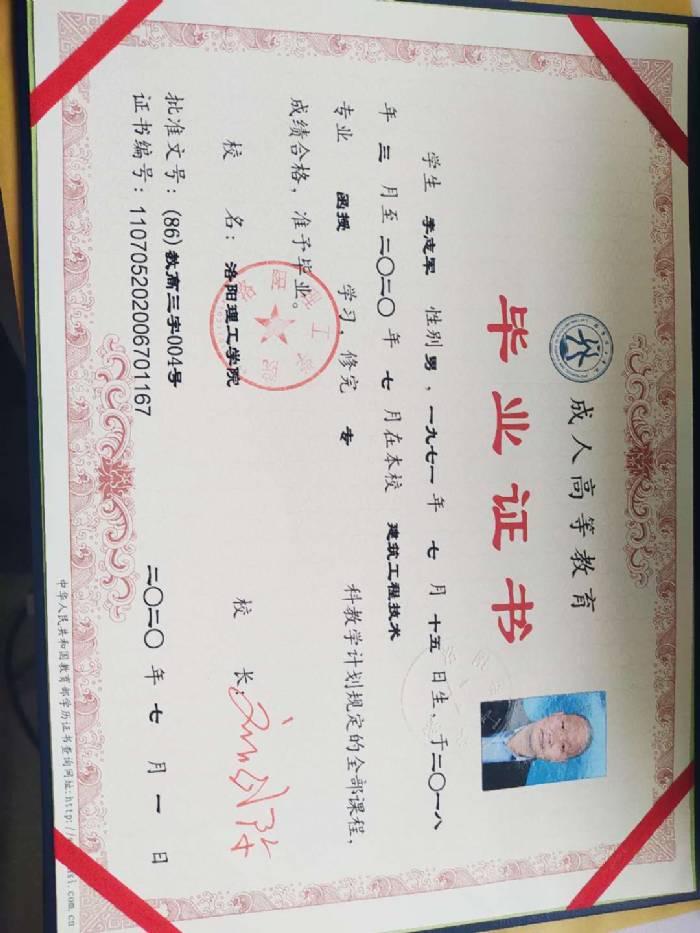 成人高等教育
毕业证书
学生 李志军 性别 男,一九七一年 七 月 十五 日生,于二〇一八
年 三 月至 二〇二〇 年 七 月在本校 建筑工程技术
专业 函授 学习,修完 专 科教学计划规定的全部课程,
成绩合格,准予毕业。
校 名:洛阳理工学院 校 长:
批准文号:(86)教高三字004号
证书编号:110705202006701167 二〇二〇 年 七 月 一 日
中华人民共和国教育部学历证书查询网址:http://
si.com.cn